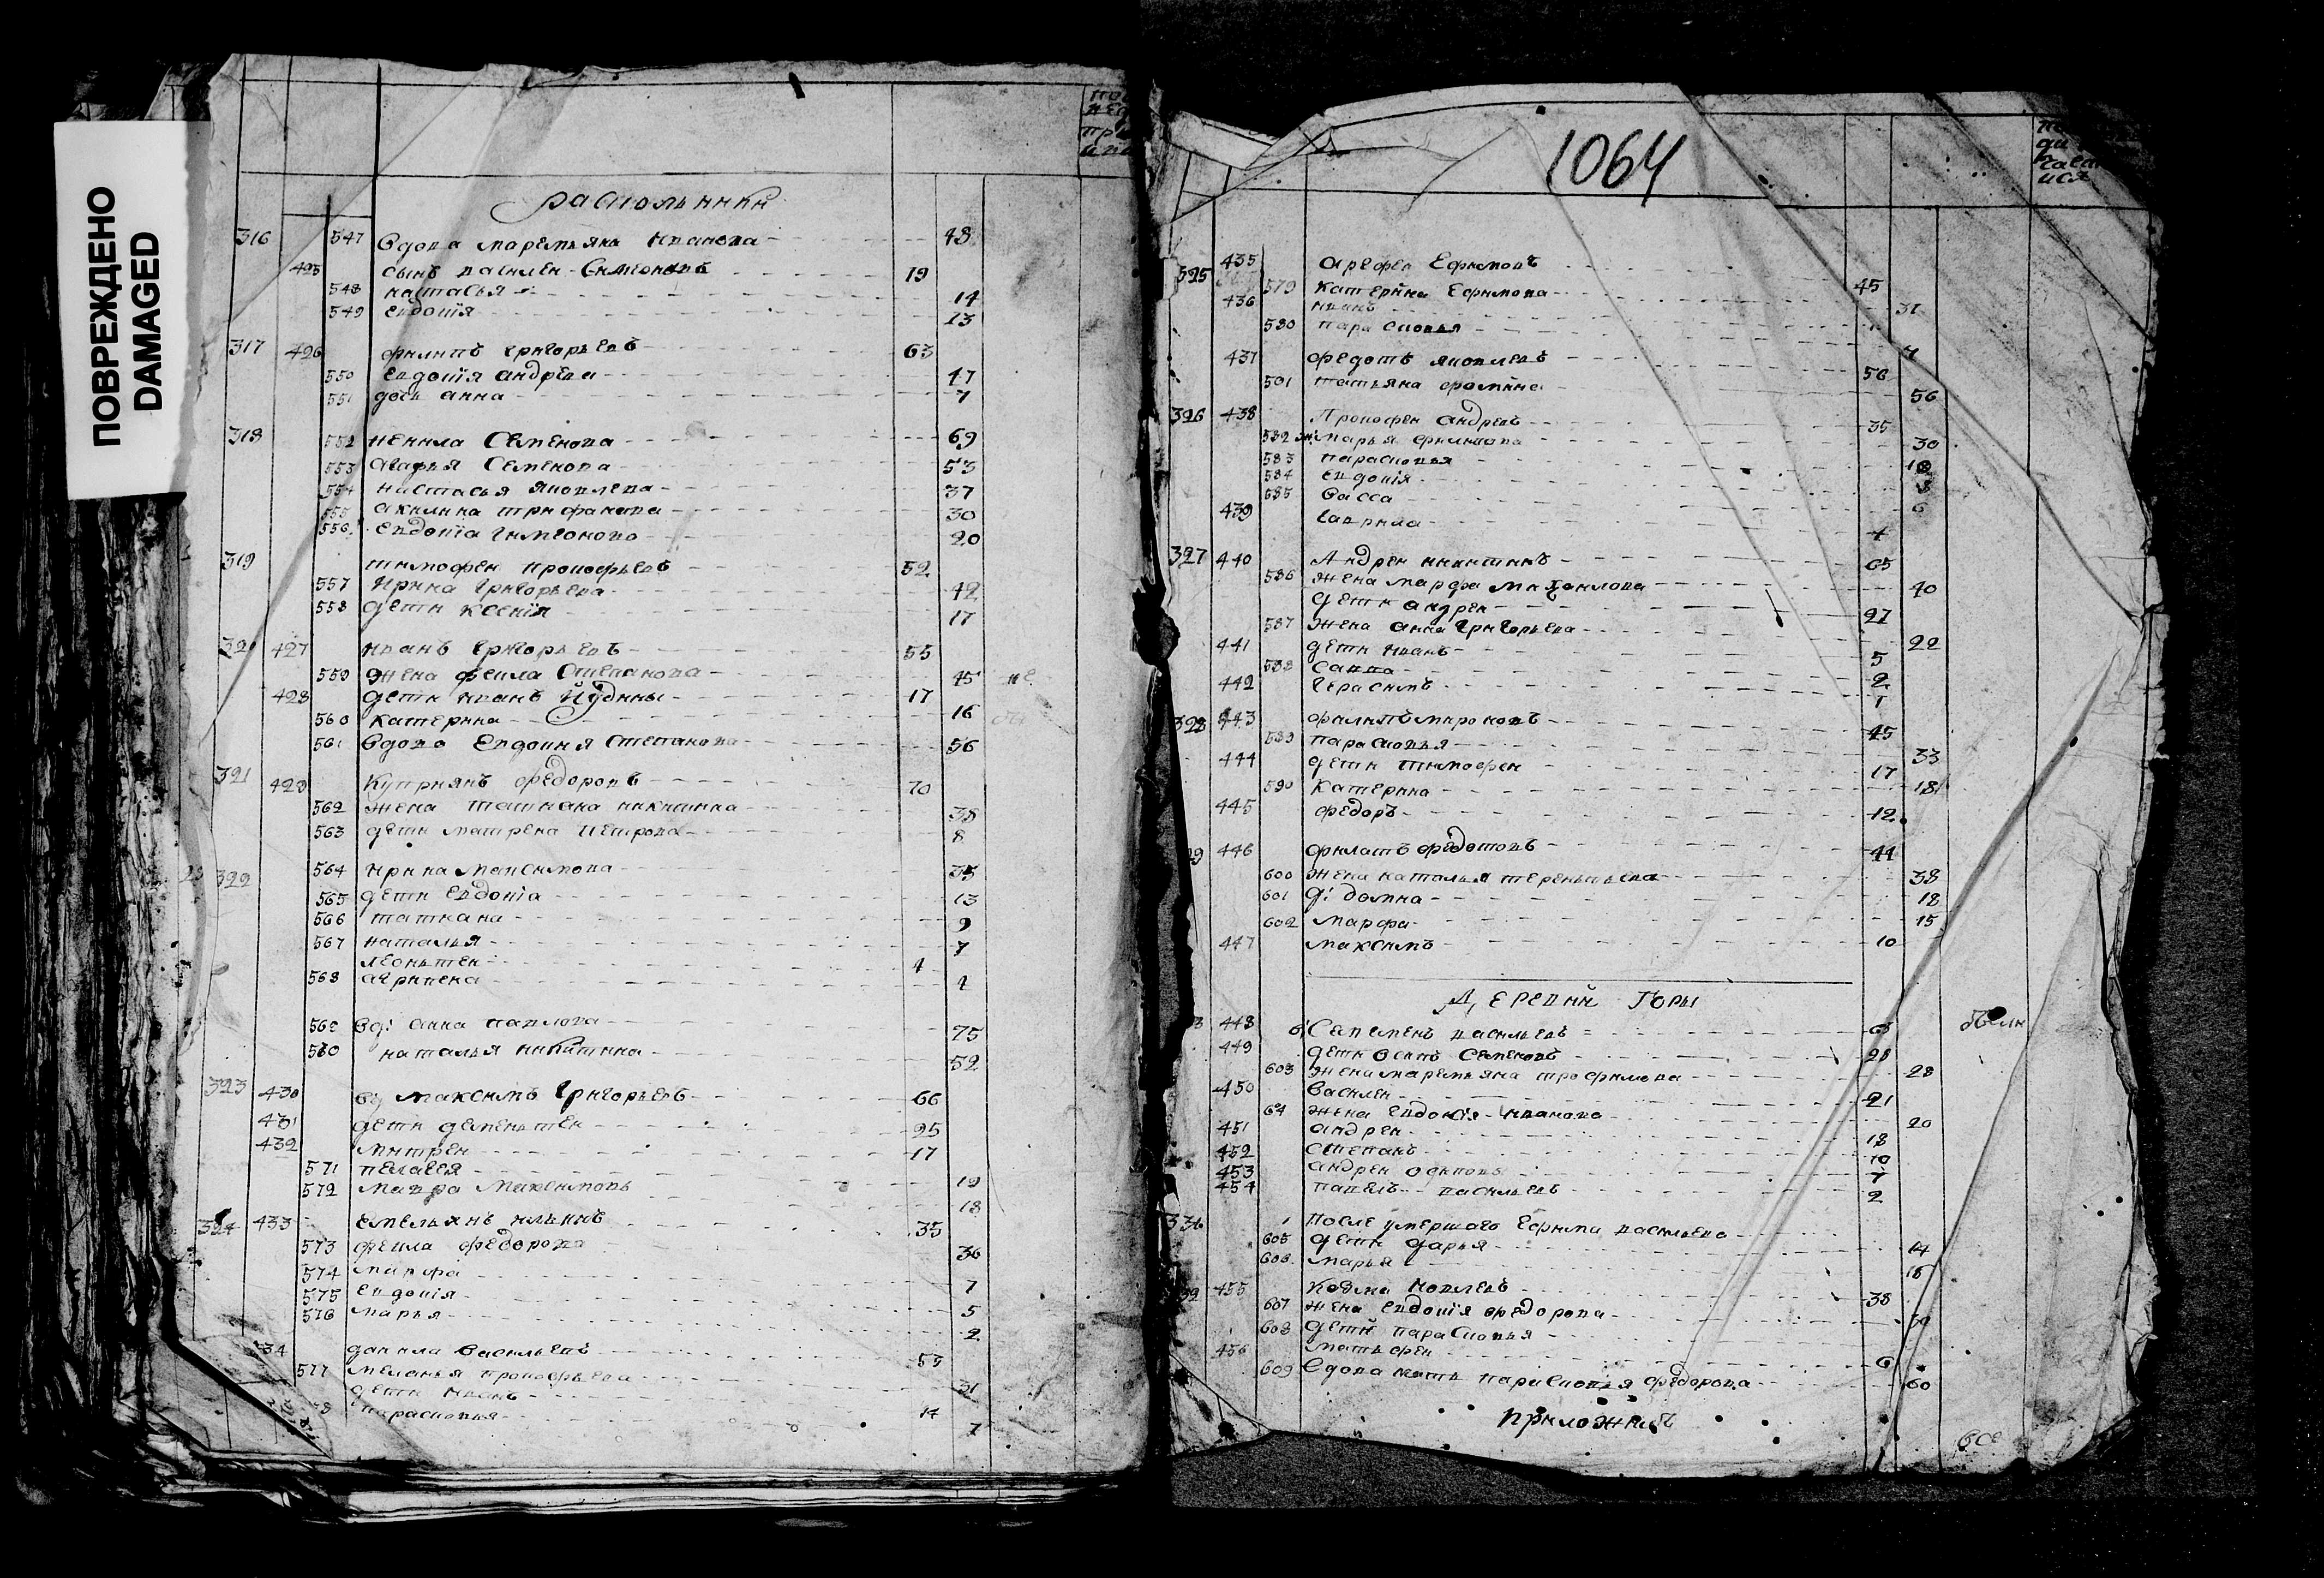 ПОВРЕЖДЕНО
DAMAGED
раскольники
316 547 Вдова маремьяна Иванова 48
425 сынъ василеи Симеоновъ 19
548 наталья 14
549 евдокїя 13
317 426 филипъ григорьевъ 63
550 евдокїя андрѣева 47
551 дочь анна 7
318 552 ненила Семенова 69
553 агафья Семенова 53
554 настасья яковлева 37
555 акилина трифанова 30
556 евдокїа симеонова 20
319 тимофеи прокофьевъ 52
557 Ирина григорьева 42
558 дети ксенїя 17
320 427 иванъ григорьевъ 55
559 жена фекла Степанова 45
428 дети иванъ 17
560 катерина 16
561 Вдова Евдокия Степанова 56
321 429 Куприянъ федоровъ 70
562 жена татиана никитина 38
563 дети матрена петрова 8
322 564 Ирина максимова 35
565 дети Евдокїа 13
566 татиана 9
567 наталья 7
леонтеи 4
568 агрипена
569 вд: анна павлова 75
560 наталья никитина 52
323 430 максимъ григорьевъ 66
431 дети дементеи 25
432 митреи 17
571 пелагея 19
572 мавра Максимовы 18
324 433 емельянъ ильинъ 35
573 фекла федорова 36
574 марфа 7
575 евдокїя 5
576 марья 2
434 данила Васильевъ 53
577 меланья прокофьева 31
дети иванъ 14
парасковья 7
1064
325 435 арефеи Ефимовъ 45
579 катерина Ефимова 31
436 иванъ
580 парасковья
437 федотъ яковлевъ 56
581 татьяна фомина 56
326 438 Прокофеи андреевъ 35
582 ж: марья филипова 30
583 парасковья
584 евдокїя 8
585 Васса 6
439 гаврила 4
327 440 Андреи никитинъ 65
586 жена марфа михаилова 40
дети андреи 27
587 жена анна григорьева 22
441 дети иванъ 5
588 савва 2
442 герасимъ 1
328 443 филипъ мироновъ 45
589 парасковья 33
444 дети тимофеи 17
590 катерина 18
445 федоръ 12
446 филатъ федотовъ 44
600 жена наталья терентьева 38
601 д: домна 18
602 марфа 15
447 максимъ 10
Деревни Горы
448 василевъ
449 дети осипъ Семеновъ 28
603 жена маремьяна трофимова 28
450 Василеи 21
604 жена евдокїя иванова 20
451 андреи 18
452 степанъ 10
453 андреи осиповъ 7
454 павелъ васильевъ 2
После умершаго Ефима васильева
605 дети дарья 14
606 марья
455 Козма 38
607 жена евдокїя федорова
608 дети парасковья
456 матвеи 6
609 Вдова мать парасковья федорова 60
приложилъ